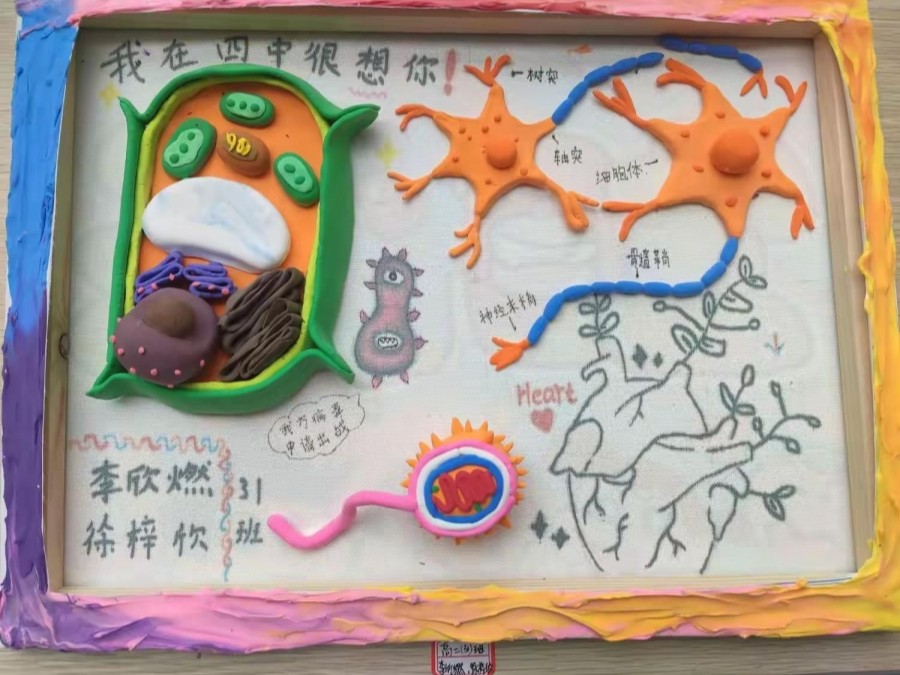 我在四中很想你!
树突
轴突
细胞体
骨遁鞘
神经末梢
Heart
我方病毒
申请出战
李欣燃
徐梓忻
31
班